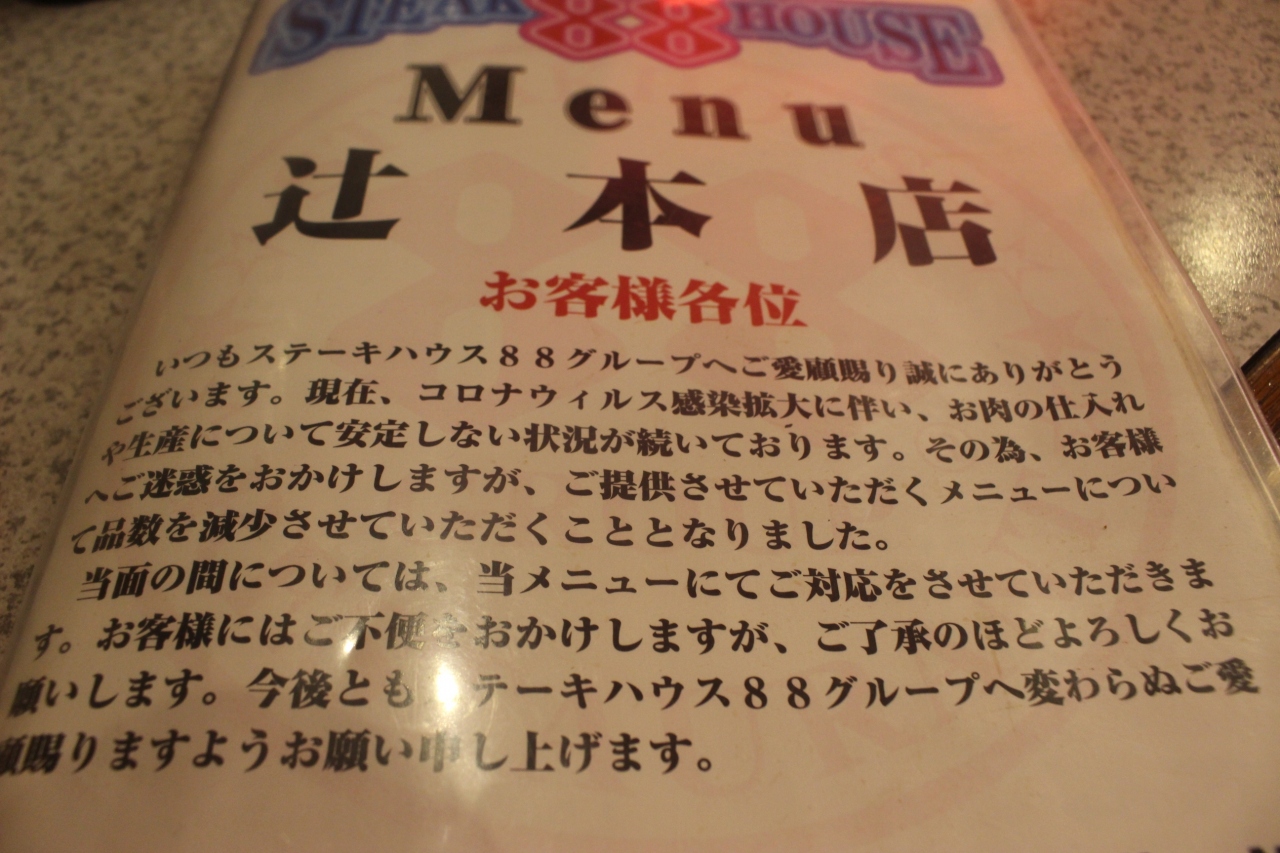 STEAK 88 HOUSE
Menu
辻本店
お客様各位
いつもステーキハウス８８グループへご愛顧賜り誠にありがとう
ございます。現在、コロナウィルス感染拡大に伴い、お肉の仕入れ
や生産について安定しない状況が続いております。その為、お客様
へご迷惑をおかけしますが、ご提供させていただくメニューについ
て品数を減少させていただくこととなりました。
当面の間については、当メニューにてご対応をさせていただきま
す。お客様にはご不便をおかけしますが、ご了承のほどよろしくお
願いします。今後ともステーキハウス８８グループへ変わらぬご愛
顧賜りますようお願い申し上げます。